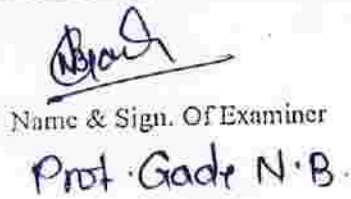 Name & Sign. Of Examiner
Prof. Gade N.B.